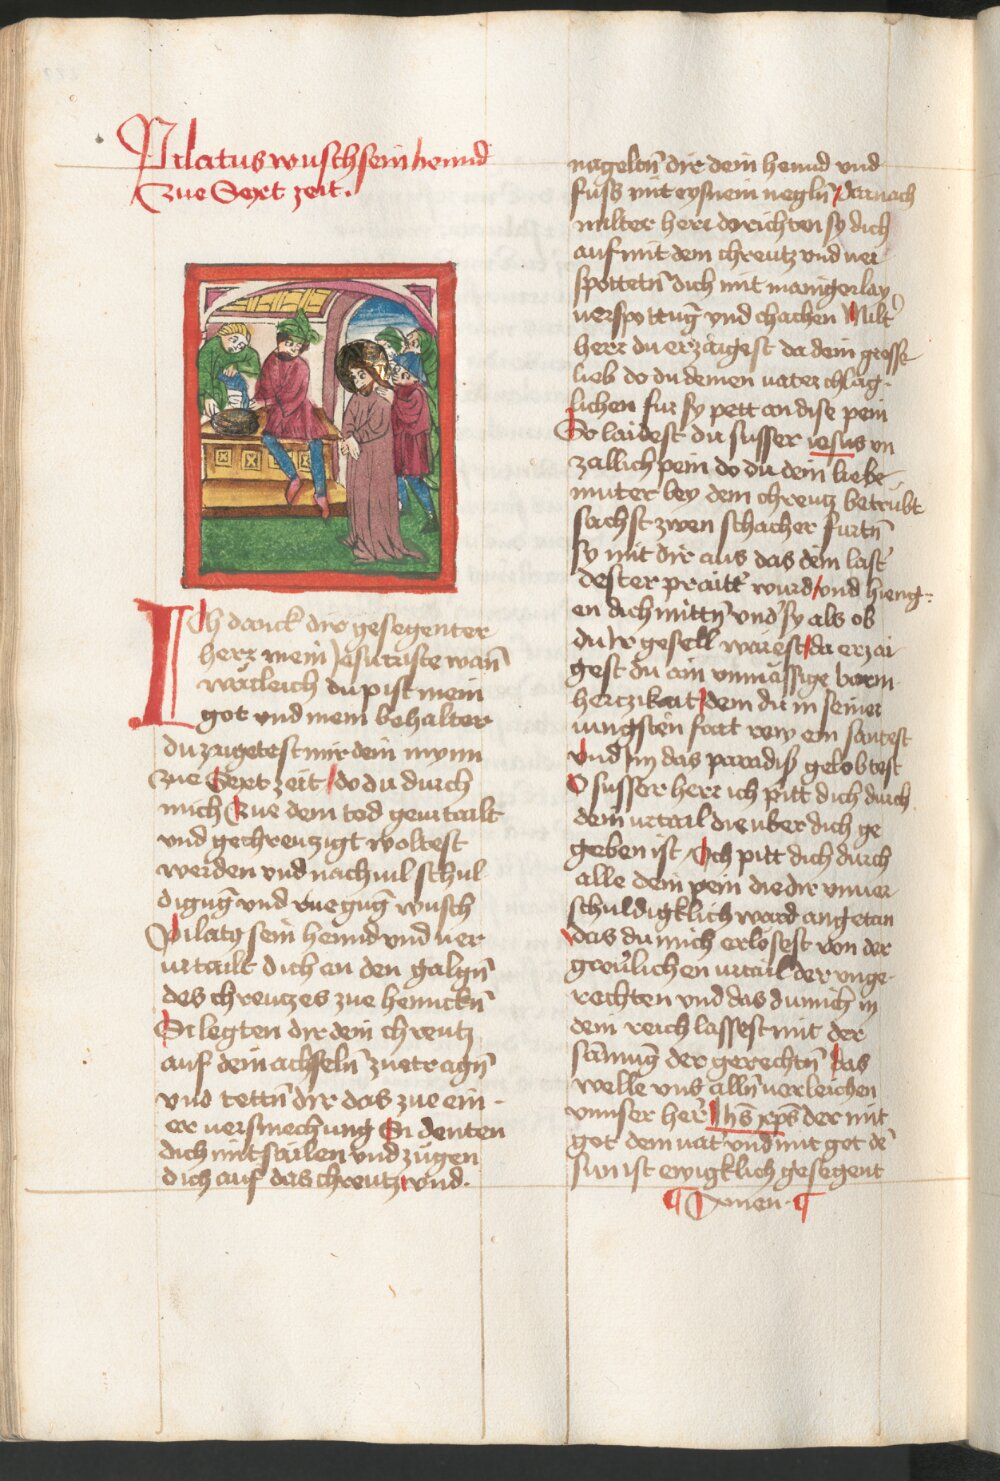 Pilatus wusch sein hennd
Zue Sext zeit.
Ich danck dir gesegenter
herr mein Jesu criste wan̄
warleich du pist mein
got vnd mein behalter
du zaigetest mir dein mynn
zue Sext zeit / do du durch
mich Zue dem tod geurtailt
vnd gechreuczigt woltest
werden vnd nach vil schul
digūg vnd ruegūg wusch
Pilatꝰ sein hennd vnd ver
urtailt dich an den galgn̄
des chreuczes zue hennckn̄
Si legten dir dein chreutz
auf dein achseln̄ zue tragn̄
vnd tettn̄ dir das zue ein
er versmechung Si denten
dich mit sailen vnd zugen
dich auf das chreutz vnd
nagelon̄ dir dein hennd vnd
fuss mit eysnein negln̄ / darnach
milter herr derichten sy dich
auf mit dem chreutz vnd ver
spottetn̄ dich mit manigerlay
verspottūg vnd chachen Milt
herr du erzaigest da dein grosse
lieb do du deinen vater chlag
lichen fur sy pett an dise pein
Do laidest du susser iesus vn
zallich pein do du dein liebe
muter bey dem chreutz betrubt
sachst zwen schacher furtn̄
sy mit dir aus das dein last̄
dester praitt̄ wurd / vnd hieng
en dich mittn̄ vnd̄ sy als ob
du Ir gesell warest / da erzai
gest du ain vnmassige barm
herczikait / dem du in seiner
iungsten fart rew ein santest
vnd Im das paradiß gelobtest
O susser herr ich pitt dich durch
dein urtail die uber dich ge
geben ist / Ich pitt dich durch
alle dein pein die dir vnuer
schuldigklich ward angetan
das du mich erlosest von der
greulichen urtail der vnge
rechten vnd das du mich in
dein reich lassest mit der
samnūg der gerechtn̄ / das
welle vns alln̄ verleichen
vnnser her̄ Ihs̄ xp̄s der mit
got dem vat̄ vnd mit got dē
sun ist ewigklich gesegent
¶ Amen ¶